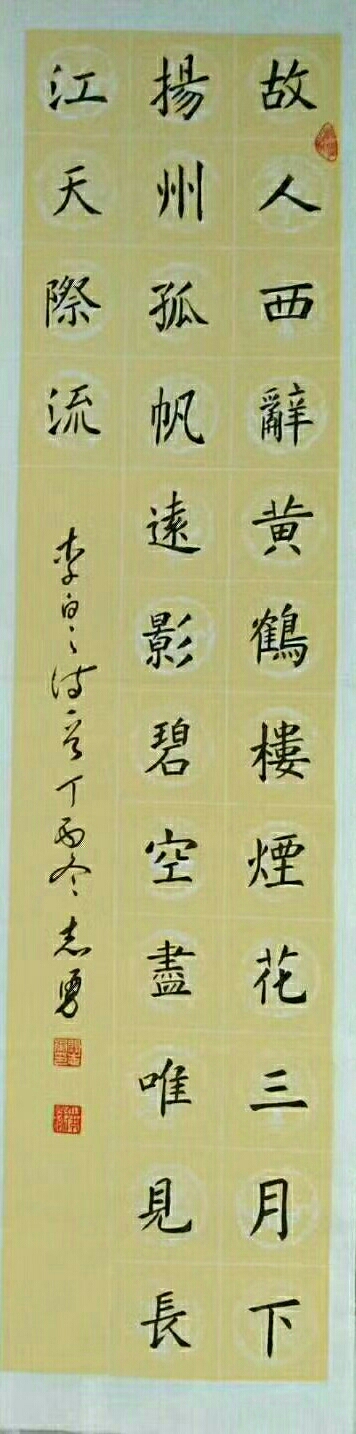 故人西辭黃鶴樓煙花三月下
揚州孤帆遠影碧空盡唯見長
江天際流
李白詩一首丁酉冬志勇